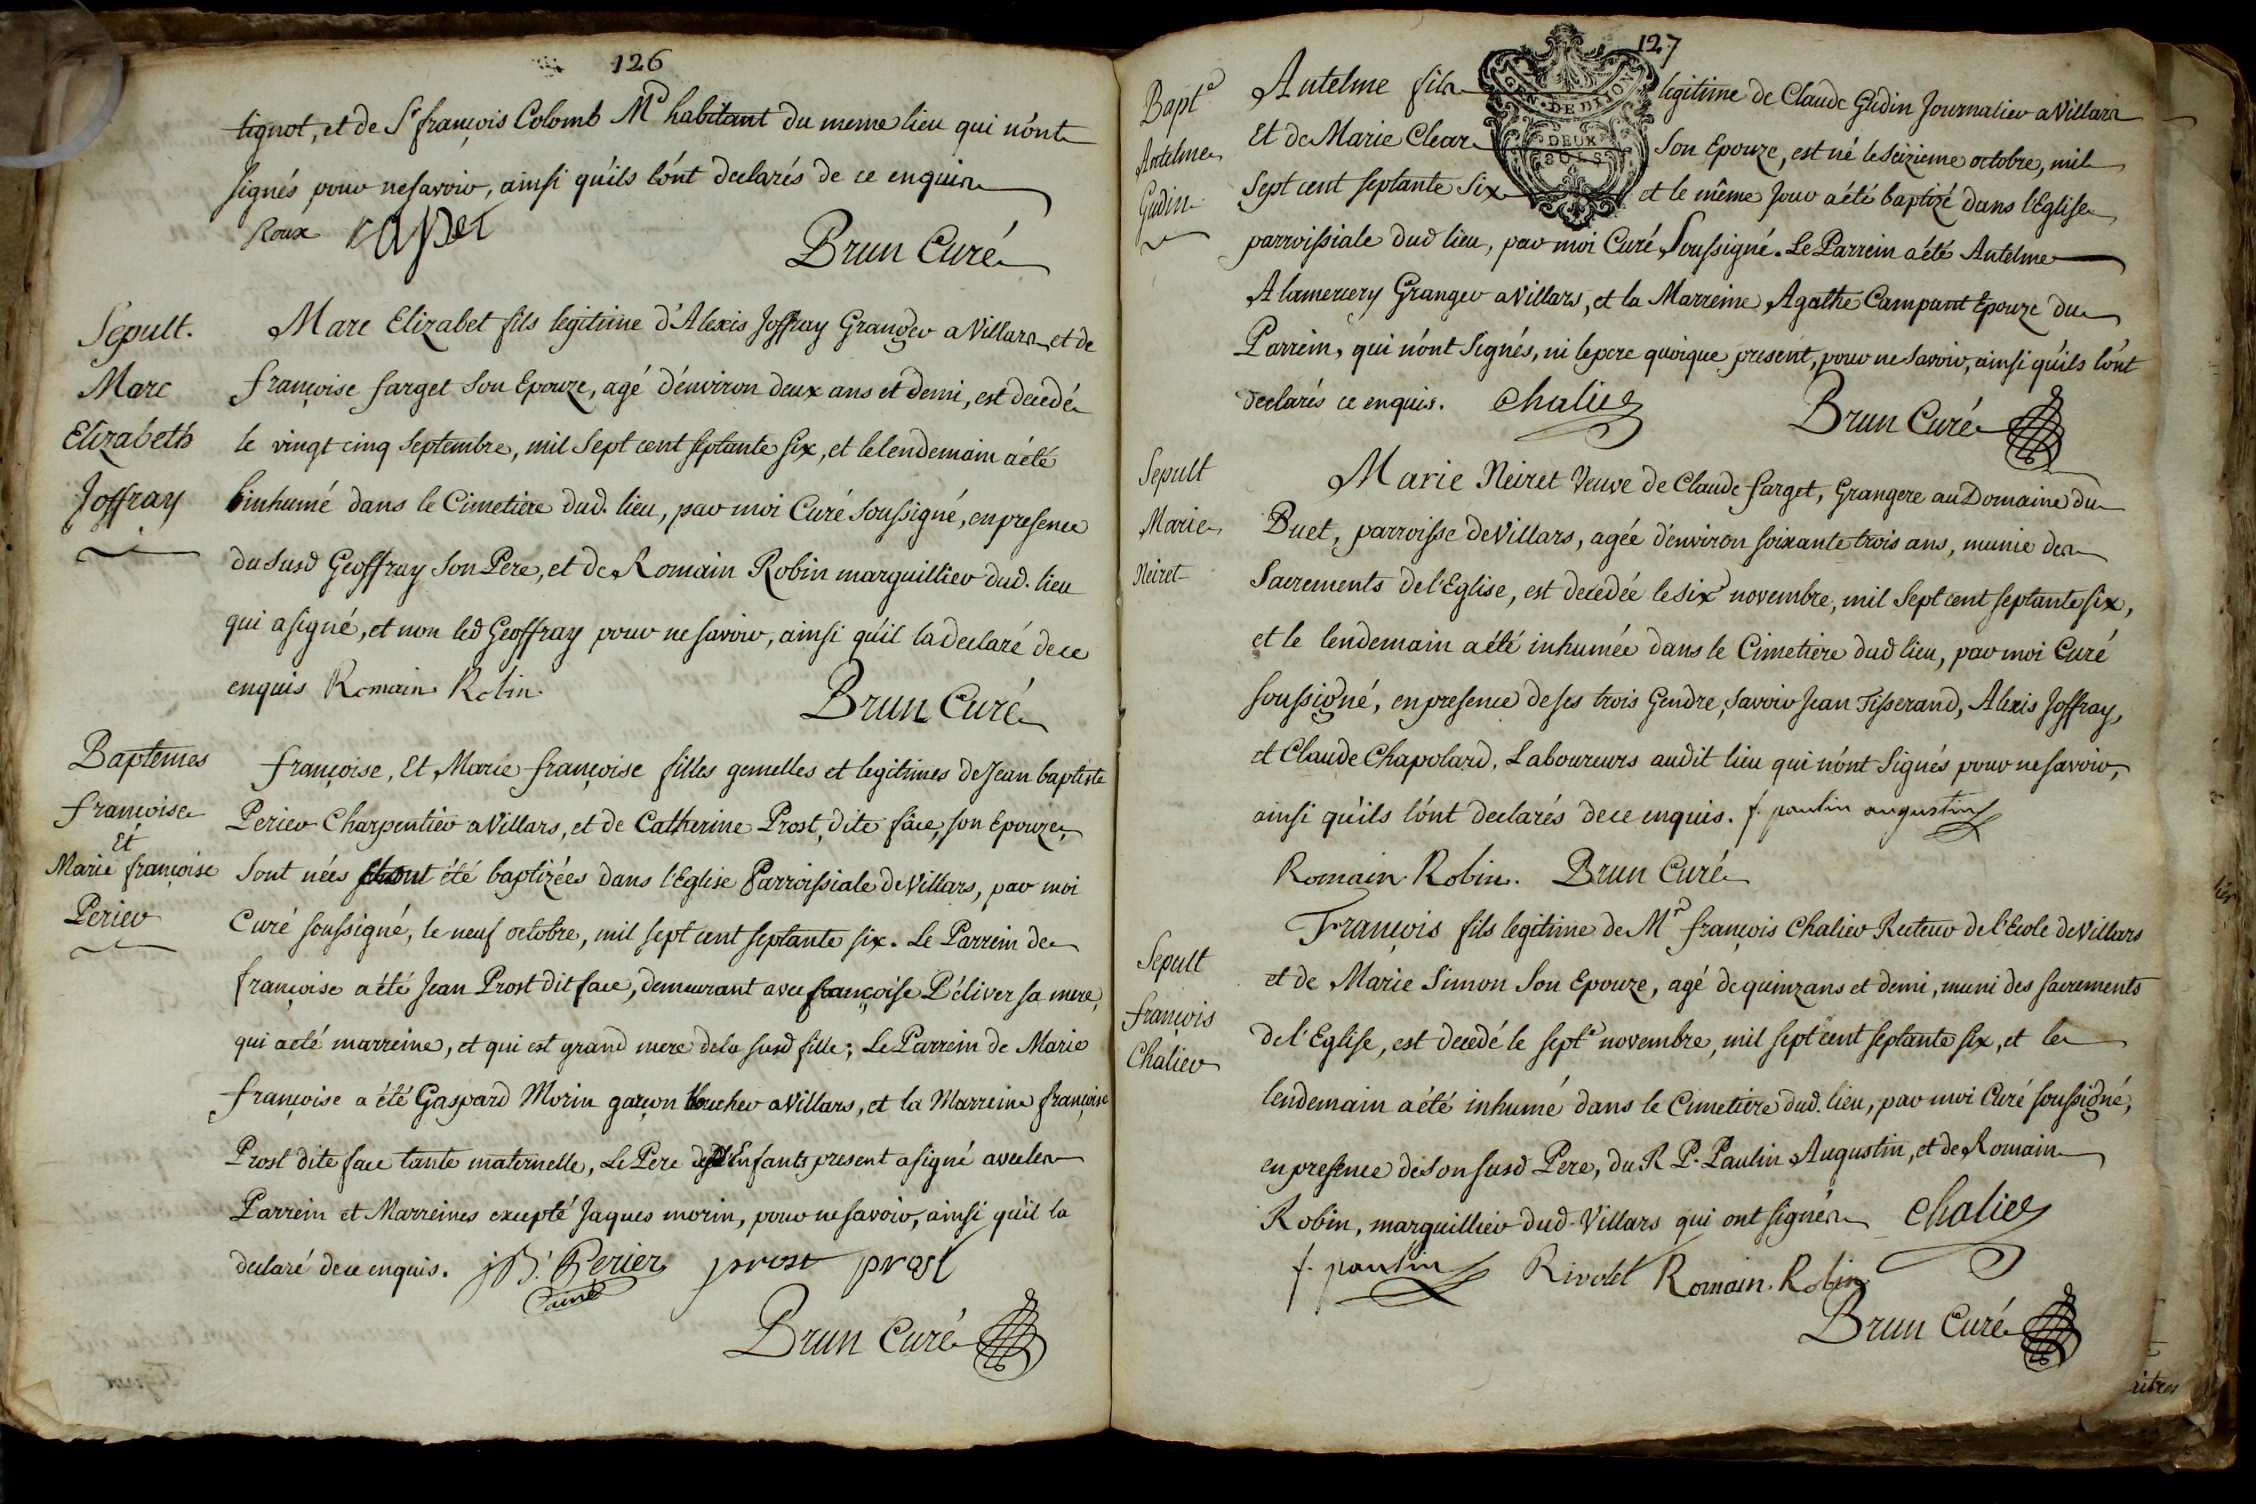 126
tignot, et de Sr françois Colomb Md habitant du meme lieu qui n'ont
signés pour ne savoir, ainsi qu'ils l'ont declarés de ce enquis
Roux capet
Brun Curé
Sepult.
Marc
Elizabeth
Joffray
Marc Elizabet fils legitime d'Alexis Joffray Granger a Villars et de
françoise farget son Epouze, agé d'environ deux ans et demi, est decedé
le vingt cinq Septembre, mil sept cent septante six, et le lendemain a été
inhumé dans le Cimetiere dud. lieu, par moi Curé soussigné, en presence
du susd Geoffray son Pere, et de Romain Robin marguillier dud. lieu
qui a signé, et non led Geoffray pour ne savoir, ainsi qu'il la declaré de ce
enquis Romain Robin
Brun Curé
Baptemes
françoise
Et
Marie françoise
Perier
françoise, Et Marie françoise filles gemelles et legitimes de Jean baptiste
Perier Charpentier a Villars, et de Catherine Prost, dite face, son Epouze,
sont nées et ont été baptizées dans l'Eglise Parroissiale de Villars, par moi
Curé soussigné, le neuf octobre, mil sept cent septante six. Le Parrein de
françoise a été Jean Prost dit face, demeurant avec françoise Péliver sa mere,
qui a eté marreine, et qui est grand mere de la susd fille; Le Parrein de Marie
françoise a été Gaspard Morin garçon boucher a Villars, et la Marreine françoise
Prost dite face tante maternelle, Le Pere Enfants present a signé avec les
Parrein et Marreines excepté Jaques morin, pour ne savoir, ainsi qu'il la
declaré de ce enquis. jB. Perier prost prost
Brun Curé
127
GEN. DE DIJON
DEUX
SOLS
Bapte
Antelme
Gudin
Antelme fils legitime de Claude Gudin Journalier a Villars
Et de Marie Clear Son Epouze, est né le seizieme octobre, mil
Sept cent septante six et le même jour a été baptizé dans l'Eglise
parroissiale dud lieu, par moi Curé Soussigné. Le Parrein a été Antelme
Alamercery Granger a Villars, et la Marreine Agathe Campant Epouze du
Parrein, qui n'ont signés, ni le pere quoique present, pour ne savoir, ainsi qu'ils l'ont
declarés ce enquis. Chalier Brun Curé
Sepult
Marie
Neiret
Marie Neiret Veuve de Claude farget, Grangere au Domaine du
Buet, parroisse de Villars, agée d'environ soixante trois ans, munie des
Sacrements de l'Eglise, est decedée le six novembre, mil Sept cent septante six,
et le lendemain a été inhumée dans le Cimetiere dud lieu, par moi Curé
soussigné, en presence de ses trois Gendre, savoir Jean Tisserand, Alexis Joffray,
et Claude Chapolard, Laboureurs audit lieu qui n'ont signés pour ne savoir,
ainsi qu'ils l'ont declarés de ce enquis. f. paulin augustin
Romain Robin. Brun Curé
Sepult
françois
Chalier
François fils legitime de Mr françois Chalier Recteur de l'Ecole de Villars
et de Marie Simon Son Epouze, agé de quinz ans et demi, muni des sacrements
de l'Eglise, est decedé le septe novembre, mil sept cent septante six, et le
lendemain a été inhumé dans le Cimetiere dud. lieu, par moi Curé soussigné,
en presence de son susd Pere, du R P. Paulin Augustin, et de Romain
Robin, marguillier dud. Villars qui ont signés Chalier
f. paulin Rivolet Romain. Robin
Brun Curé